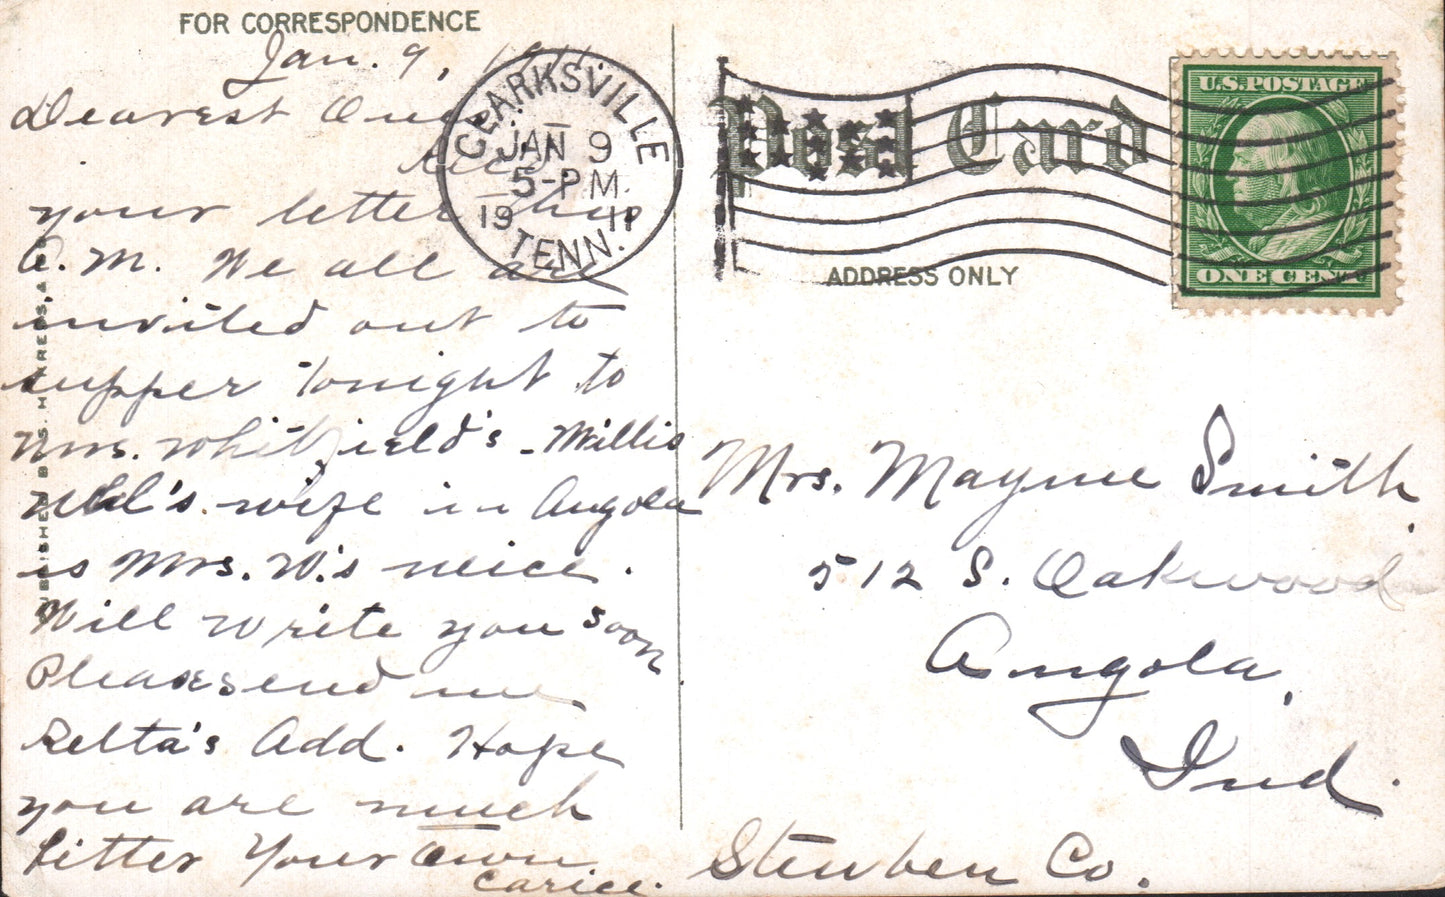 FOR CORRESPONDENCE
Jan. 9, 1911
Dearest One
Rec'd
your letter this
A.M. We all are
invited out to
supper tonight to
Mrs. Whitfield's - Willis
Uhl's wife in Angola
is Mrs. W.'s neice.
Will write you soon
Please send me
Relta's Add. Hope
you are much
better Your own
Carice.
CLARKSVILLE
JAN 9
5-PM.
19 11
TENN.
Post Card
ADDRESS ONLY
U.S. POSTAGE
ONE CENT
Mrs. Mayme Smith
512 S. Oakwood
Angola,
Ind.
Steuben Co.